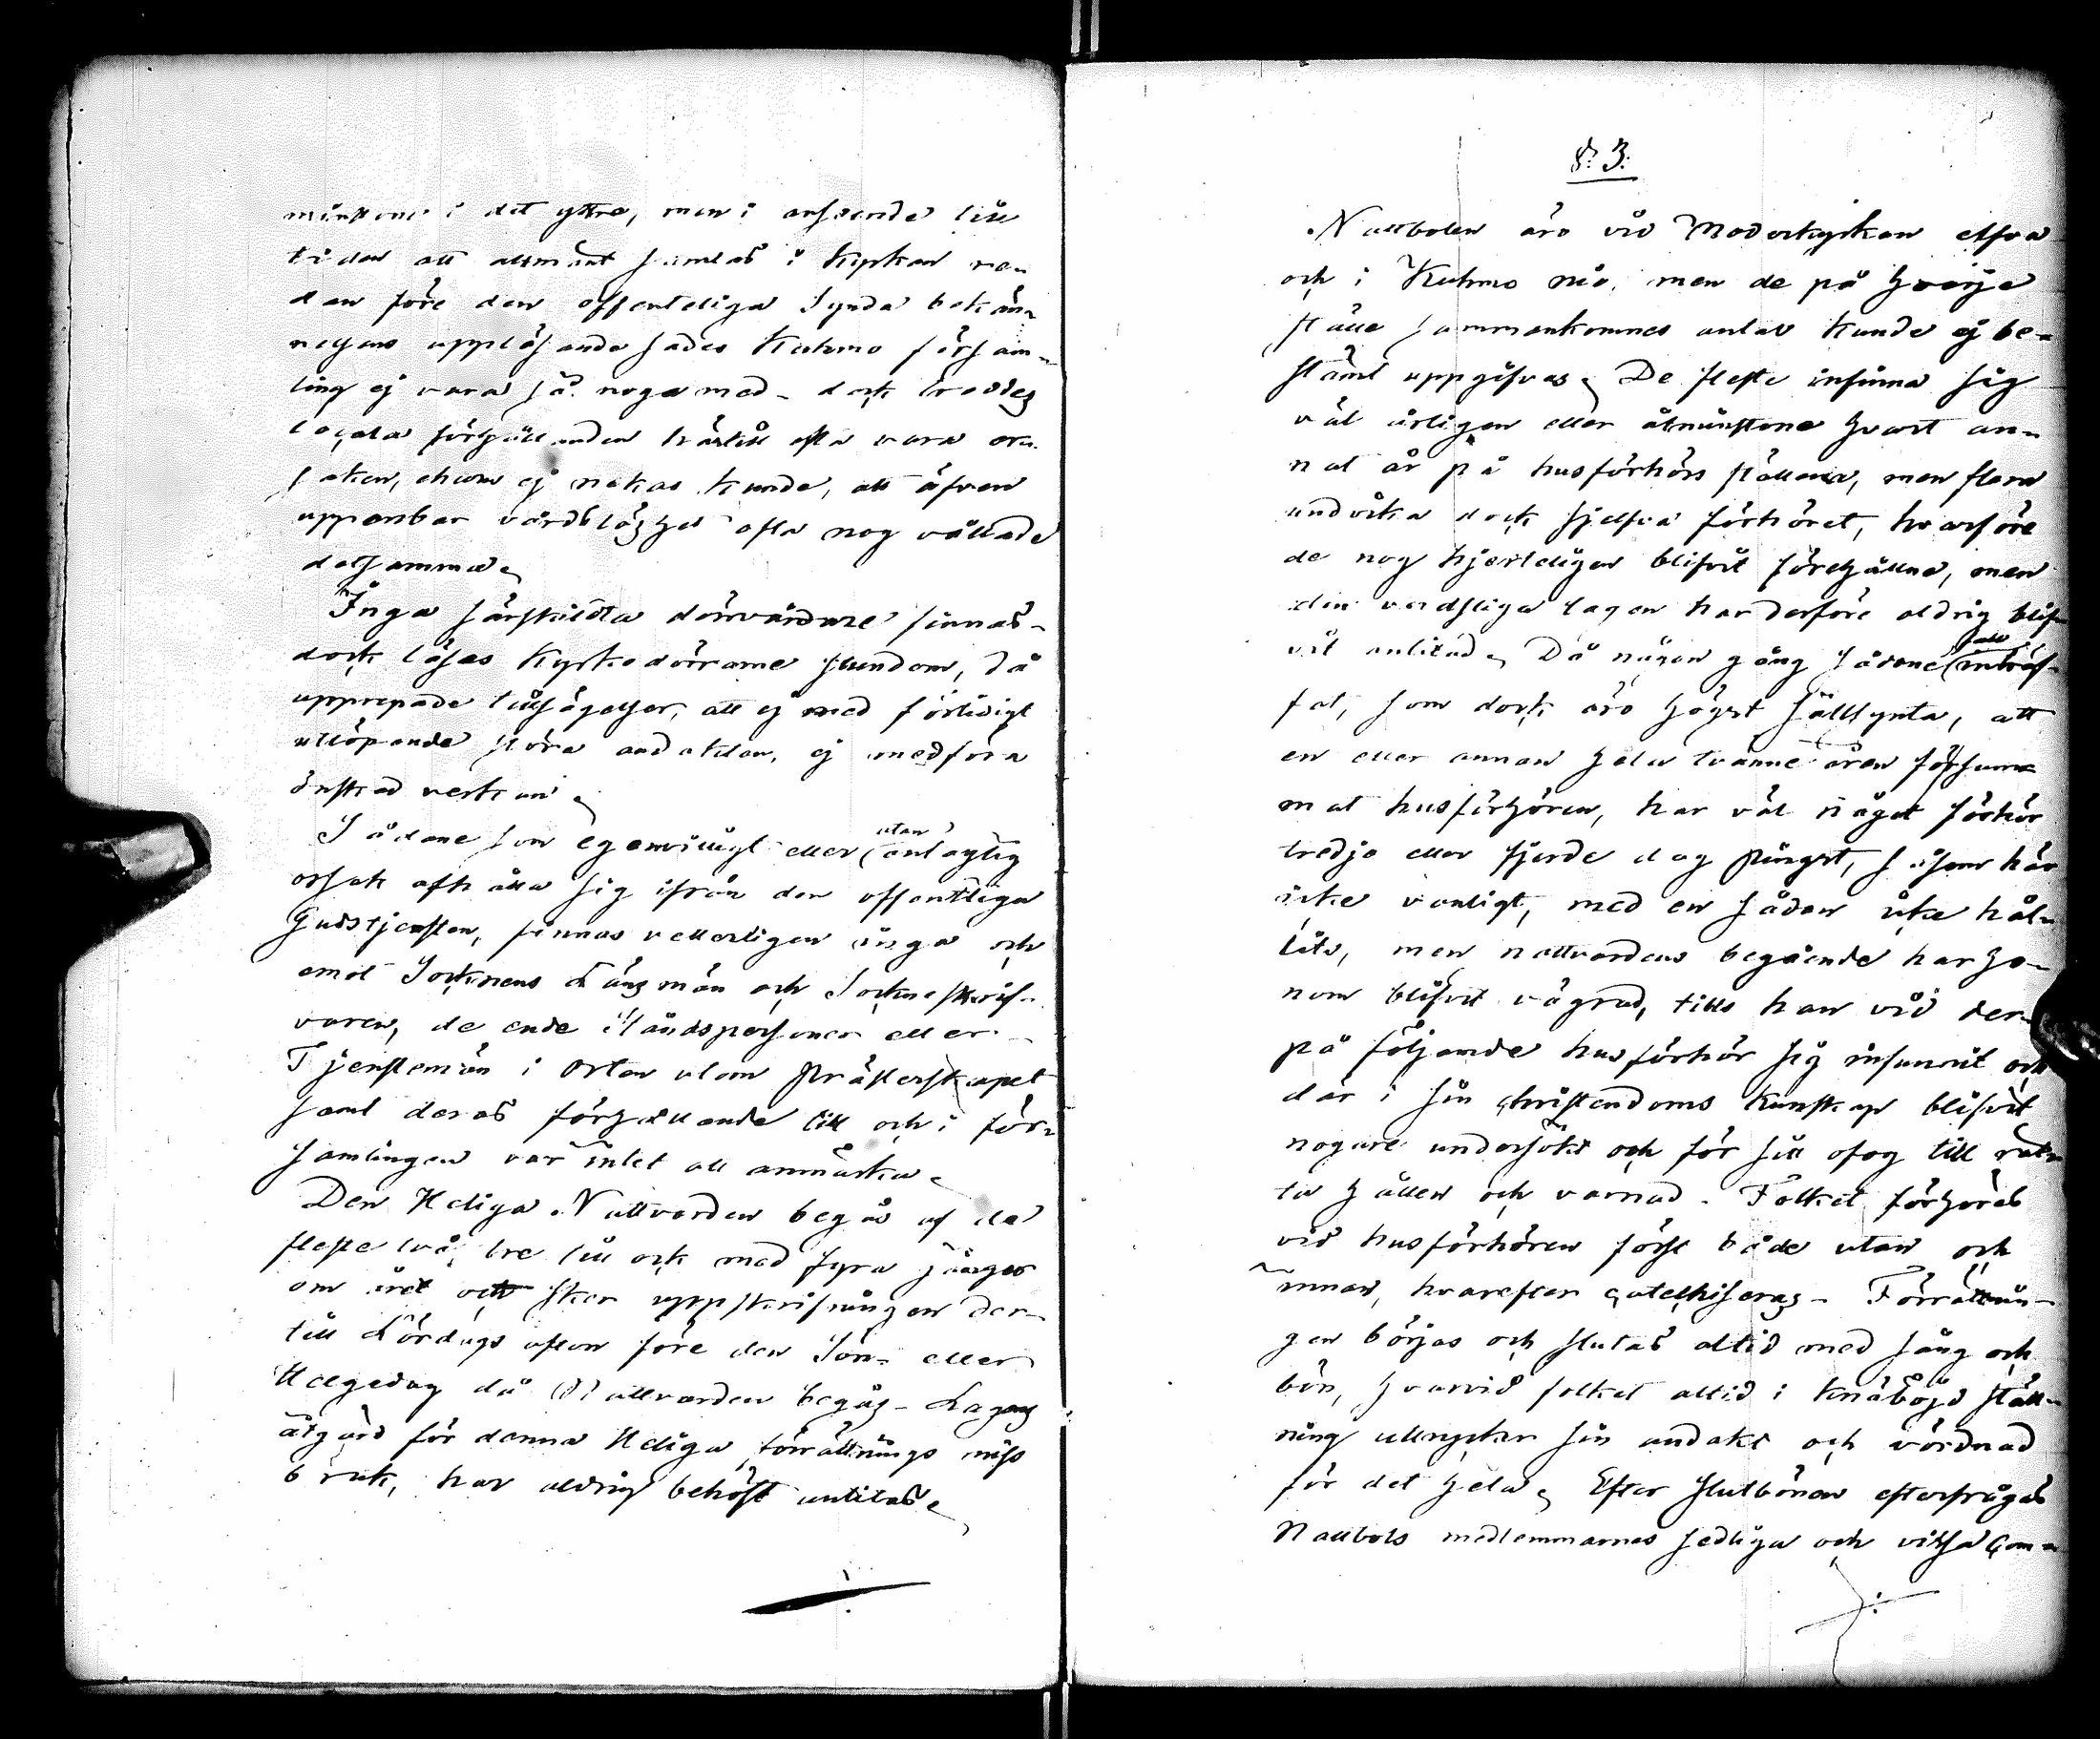 minstone i det yttre, men i anseende till
tiden att allmänt samlas i Kyrkan re-
dan före den offenteliga Synda bekän-
nelsens uppläsande sades Kuhmo försam-
ling ej vara så noga med - dock troddes
locala förhållanden härtill ofta vara or-
saken, ehuru ej nekas kunde, att äfven
uppenbar vårdslöshet ofta nog vållade
detsamma.
Inga särskildta dörrvårdare finnas -
dock låsas Kyrkodörrarne stundom, då
upprepade tillsägelser, att ej med förtidigt
utlöpande störa andakten, ej medföra
önskad verkan.
Sådane som egenvilligt eller utan antaglig
orsak afhålla sig ifrån den offentliga
Gudstjensten, finnas vetterligen inga och
emot Socknens Länsman och Sockneskrif-
varen, de enda Ståndspersoner eller
Tjenstemän i Orten utom Prästerskapet
samt deras förhållande till och i för-
samlingen var intet att anmärka.
Den Heliga Nattvarden begås af de
fleste två, tre till och med fyra gånger
om året och sker uppskrifningen der-
till Lördags afton före den Sön- eller
Helgedag då Nattvarden begås - Lagens
åtgärd för denna Heliga förrättnings miss
bruk, har aldrig behöft anlitas.
§. 3.
Nattbolen äro vid Moderkyrkan elfva
och i Kuhmo nio, men de på hvarje
ställe sammankomnes antal kunde ej be-
stämt uppgifvas. De fleste infinna sig
väl årligen eller åtminstone hvart an-
nat år på husförhörs ställena, men flera
undvika dock sjelfva förhöret, hvarföre
de nog hjerteligen blifvit förehållne, men
den verdsliga lagen har derföre aldrig blif-
vit anlitad. Då någon gång sådane fall inträf-
fat, som dock äro högst sällsynta, att
en eller annan hela tvänne åren försum-
mat husförhören, har väl något förhör
tredje eller fjerde dag Pingst, såsom här
icke vanligt, med en sådan icke hål-
lits, men nattvardens begående har ho-
nom blifvit vägrad, tills han vid der-
på följande husförhör sig infunnit och
der i sin christendoms kunskap blifvit
nogare undersökt och för sitt ofog till rät-
ta hållen och varnad. Folket förhöres
vid husförhören först både utan och
innan, hvarefter catechiseras - Förrättnin-
gen börjas och slutas altid med sång och
bön, hvarvid folket altid i knäböjd ställ-
ning uttrycker sin andakt och vördnad
för det hela. Efter slutbönen efterfrågas
Nattvols medlemmarnes sedliga och vissa com-